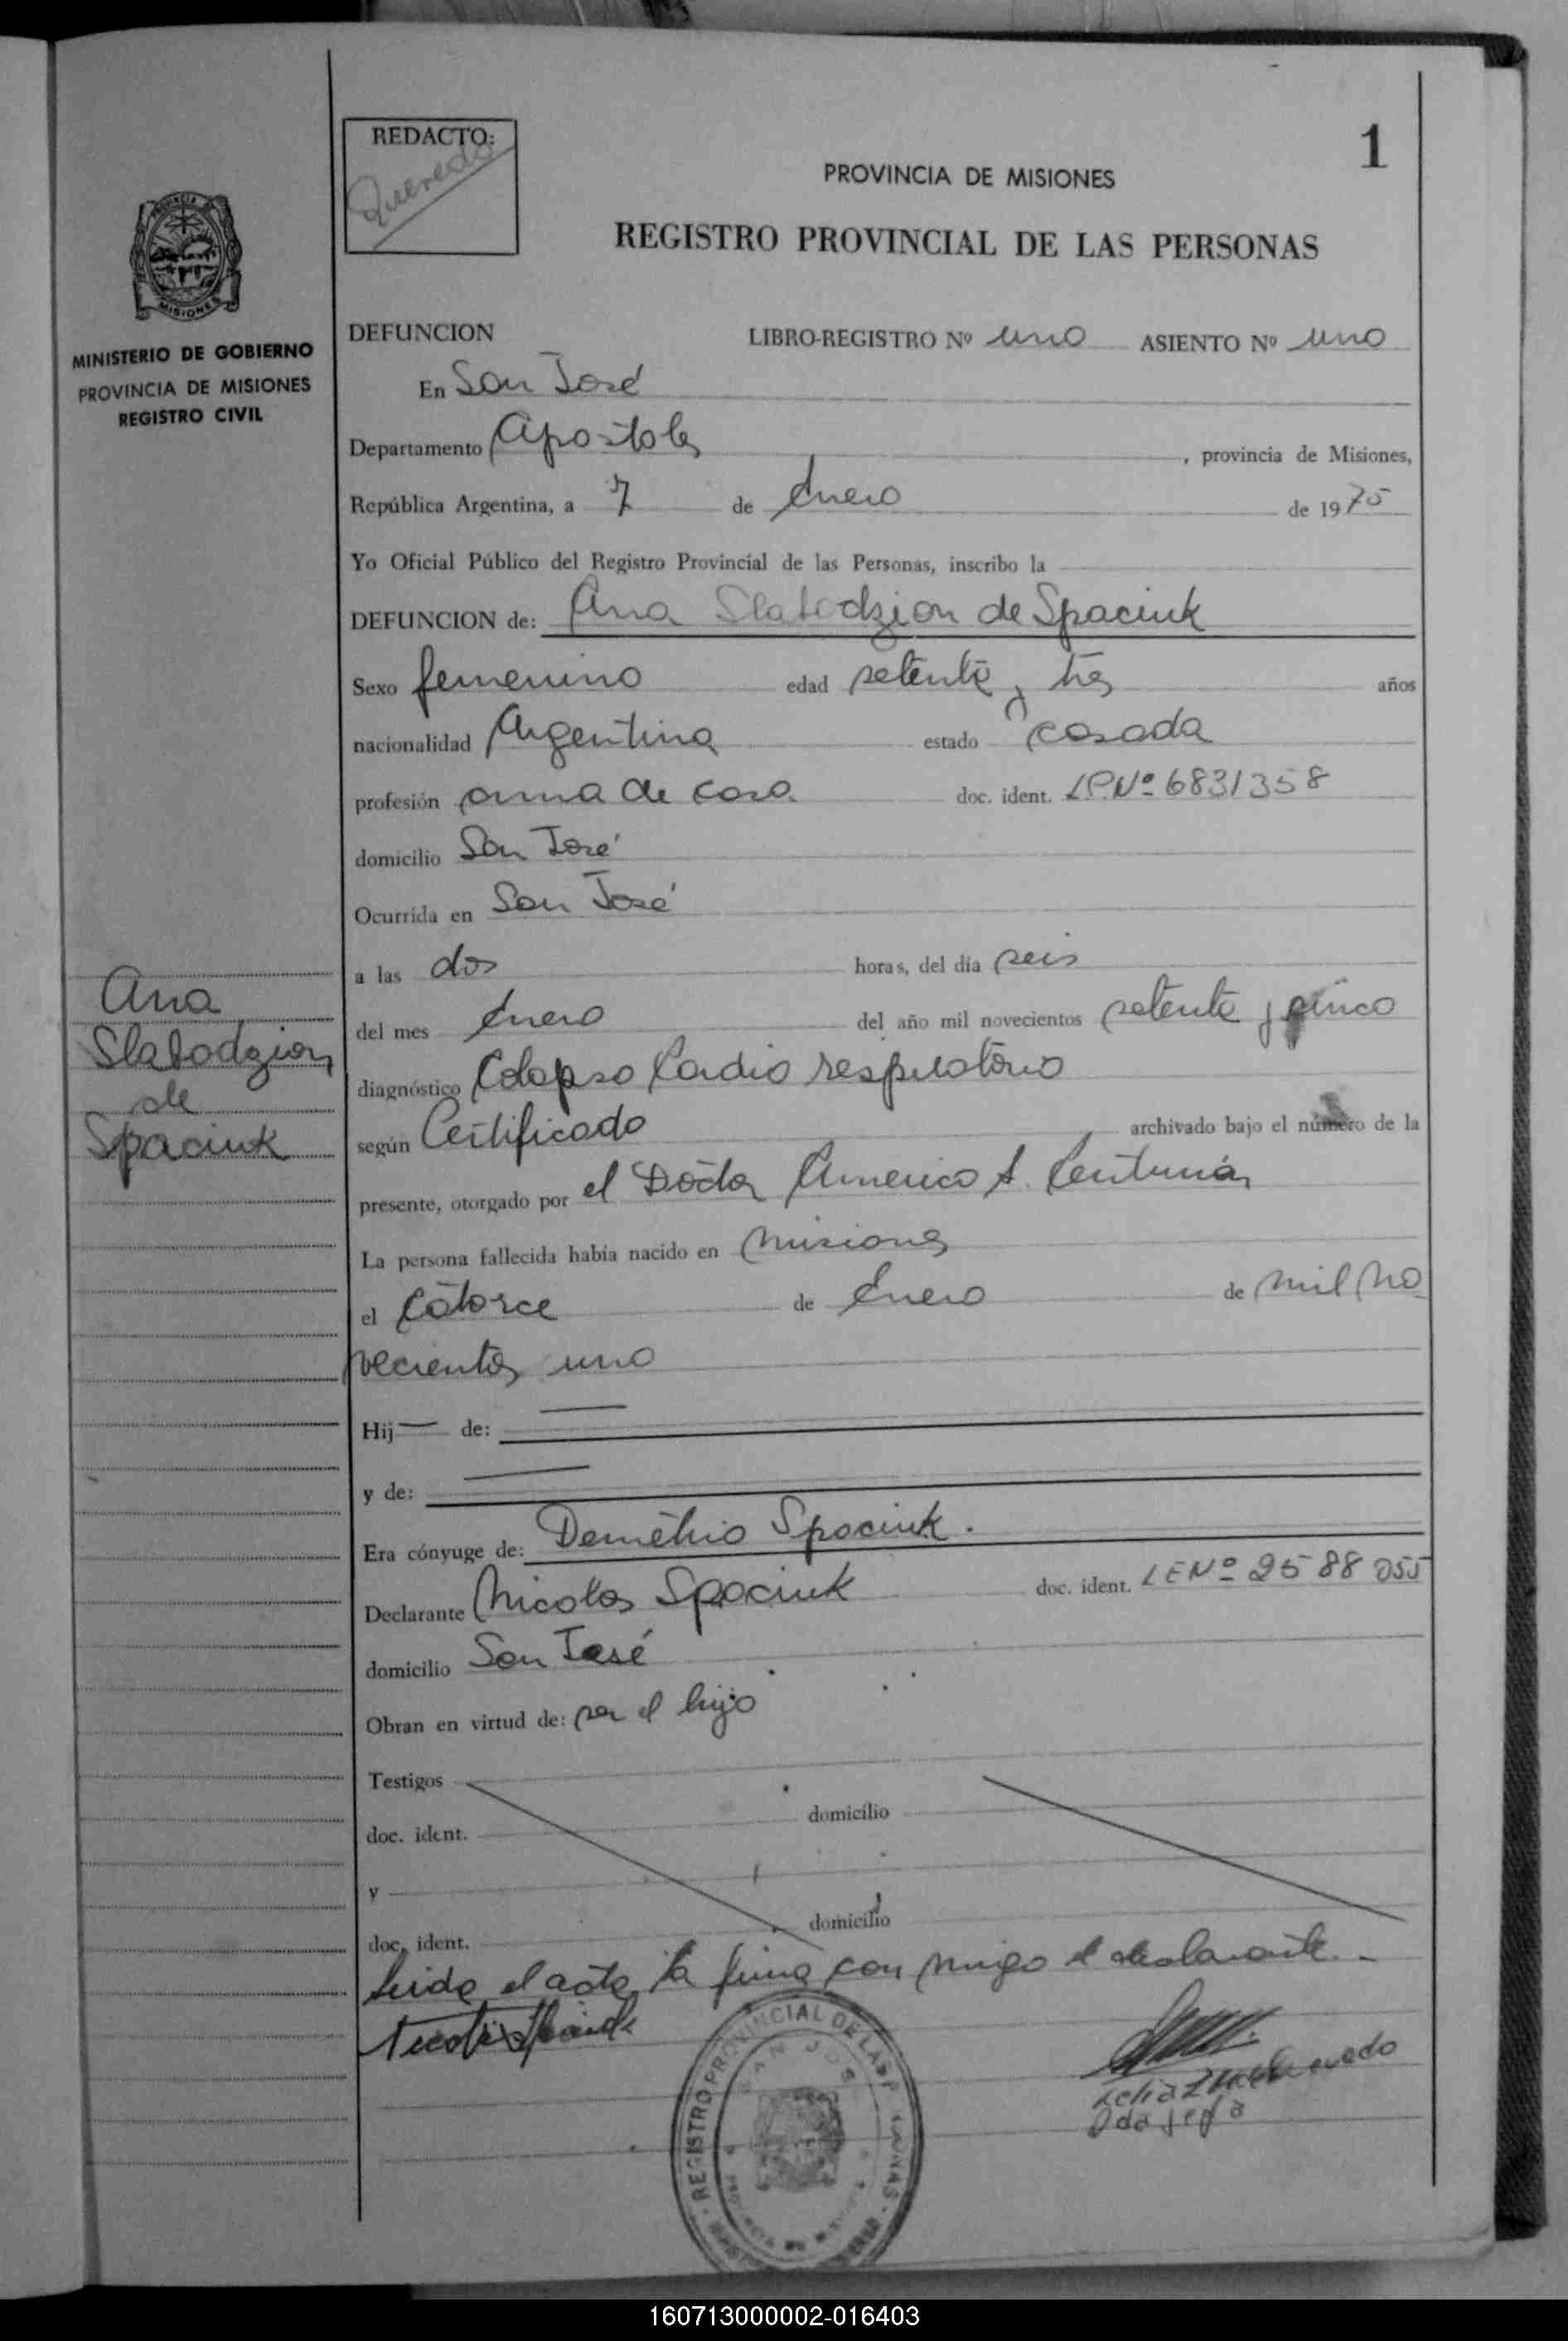 REDACTO:
Quevedo
1
PROVINCIA DE MISIONES
REGISTRO PROVINCIAL DE LAS PERSONAS
MINISTERIO DE GOBIERNO
PROVINCIA DE MISIONES
REGISTRO CIVIL
DEFUNCION LIBRO-REGISTRO Nº uno ASIENTO Nº uno
En San José
Departamento Apostoles, provincia de Misiones,
República Argentina, a 7 de Enero de 1975
Yo Oficial Público del Registro Provincial de las Personas, inscribo la
DEFUNCION de: Ana Slabodzion de Spaciuk
Sexo femenino edad setenta y tres años
nacionalidad Argentina estado casada
profesión ama de casa doc. ident. L.C.Nº 6831358
domicilio San José
Ocurrida en San José
a las dos horas, del día seis
del mes Enero del año mil novecientos setenta y cinco
diagnóstico Colapso Cardio respiratorio
según Certificado archivado bajo el número de la
presente, otorgado por el Doctor Americo A. Centurión
La persona fallecida había nacido en Misiones
el catorce de Enero de mil no
vecientos uno
Hij— de: —
y de: —
Era cónyuge de: Demetrio Spaciuk.
Declarante Nicolas Spaciuk doc. ident. LENº 2588055
domicilio San José
Obran en virtud de: ser el hijo
Testigos
doc. ident. domicilio
y
doc. ident. domicilio
Leida el acta la firma con migo el declarante.-
Ana
Slabodzion
de
Spaciuk
REGISTRO PROVINCIAL DE LAS PERSONAS
SAN JOSE
160713000002-016403